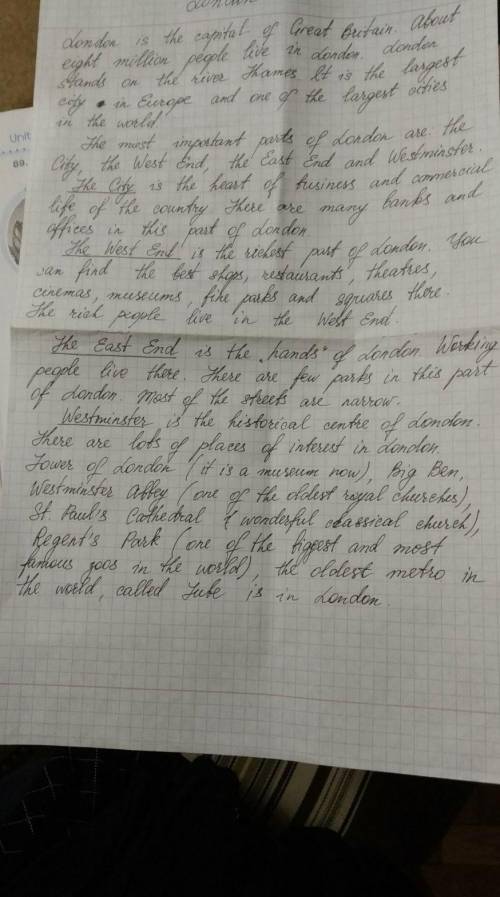 London
London is the capital of Great Britain. About
eight million people live in London. London
stands on the river Thames. It is the largest
city in Europe and one of the largest cities
in the world.
The most important parts of London are: the
City, the West End, the East End and Westminster.
The City is the heart of business and commercial
life of the country. There are many banks and
offices in this part of London.
The West End is the richest part of London. You
can find the best shops, restaurants, theatres,
cinemas, museums, fine parks and squares there.
The rich people live in the West End.
The East End is the "hands" of London. Working
people live there. There are few parks in this part
of London. Most of the streets are narrow.
Westminster is the historical centre of London.
There are lots of places of interest in London.
Tower of London (it is a museum now), Big Ben,
Westminster Abbey (one of the oldest royal churches),
St. Paul's Cathedral (wonderful classical church),
Regent's Park (one of the biggest and most
famous zoos in the world), the oldest metro in
the world, called Tube is in London.
Unit